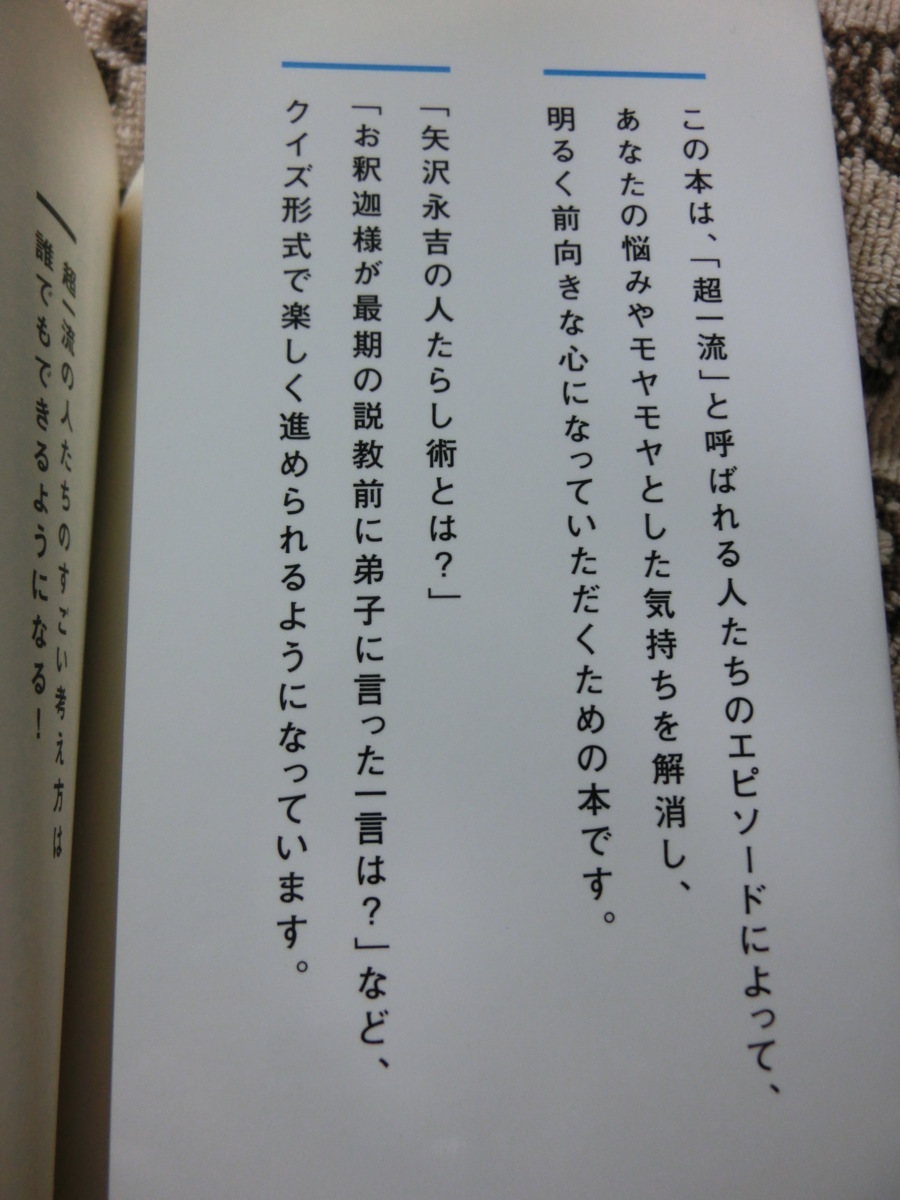 この本は、「超一流」と呼ばれる人たちのエピソードによって、
あなたの悩みやモヤモヤとした気持ちを解消し、
明るく前向きな心になっていただくための本です。
「矢沢永吉の人たらし術とは？」
「お釈迦様が最期の説教前に弟子に言った一言は？」など、
クイズ形式で楽しく進められるようになっています。
超一流の人たちのすごい考え方は
誰でもできるようになる！